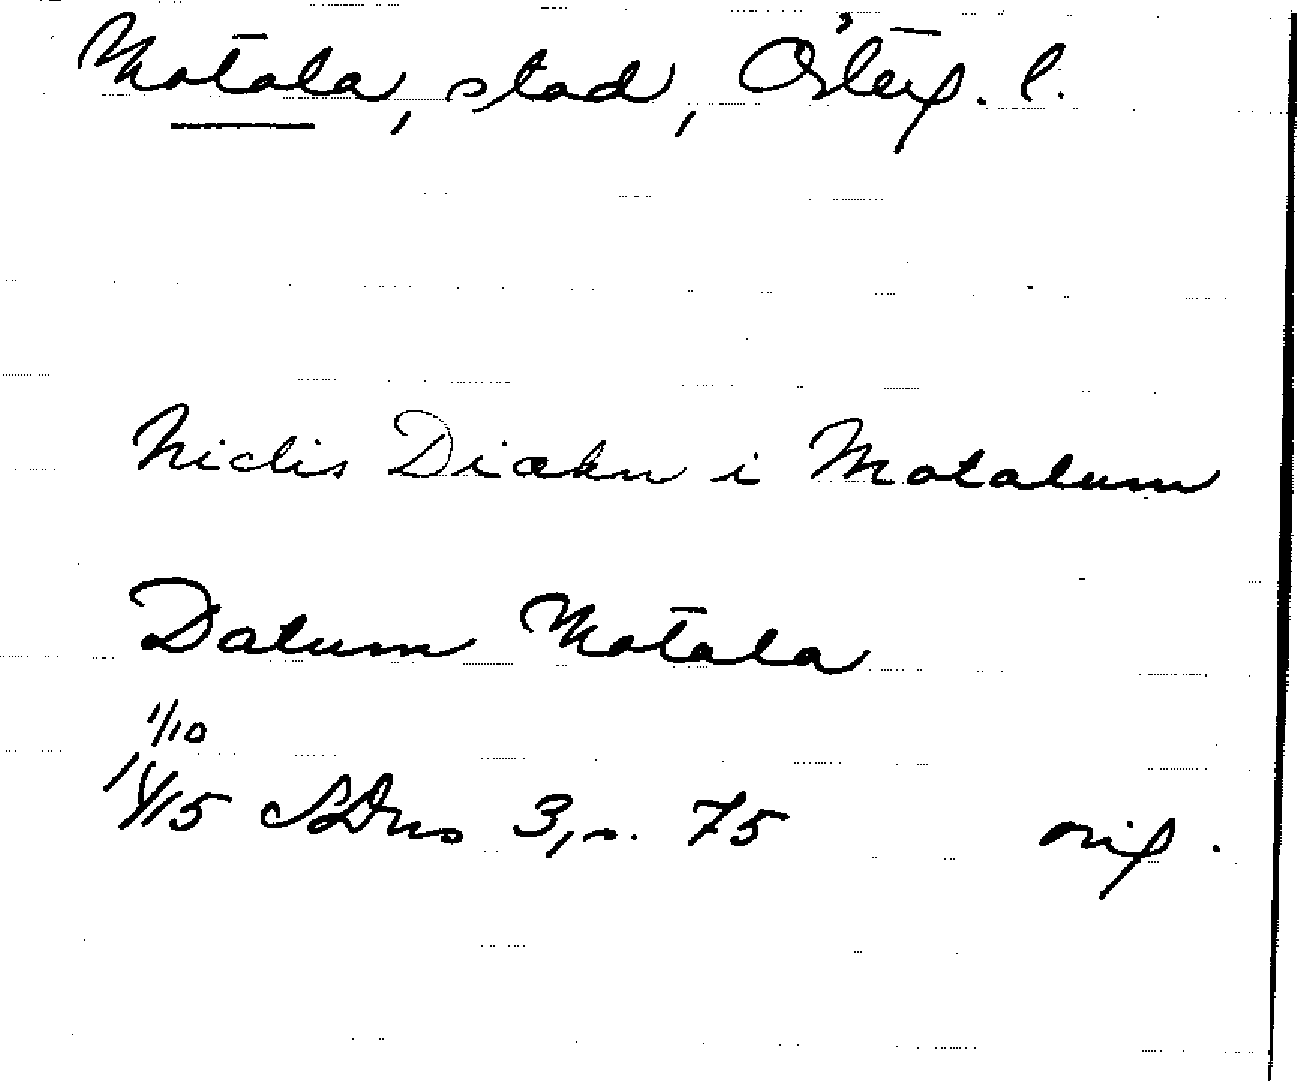 Motala, stad, Österg. l.
Niclis Diækn i Motalum
Datum Motala
1/10
1415 SDns 3, n. 75 orig.